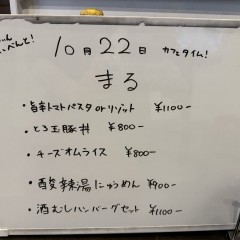 べんと!
10月22日 カフェタイム!
まる
・旨辛トマトパスタorリゾット ¥1100-
・とろ玉豚丼 ¥800-
・チーズオムライス ¥800-
・酸辣湯にゅうめん ¥900-
・酒むしハンバーグセット ¥1100-